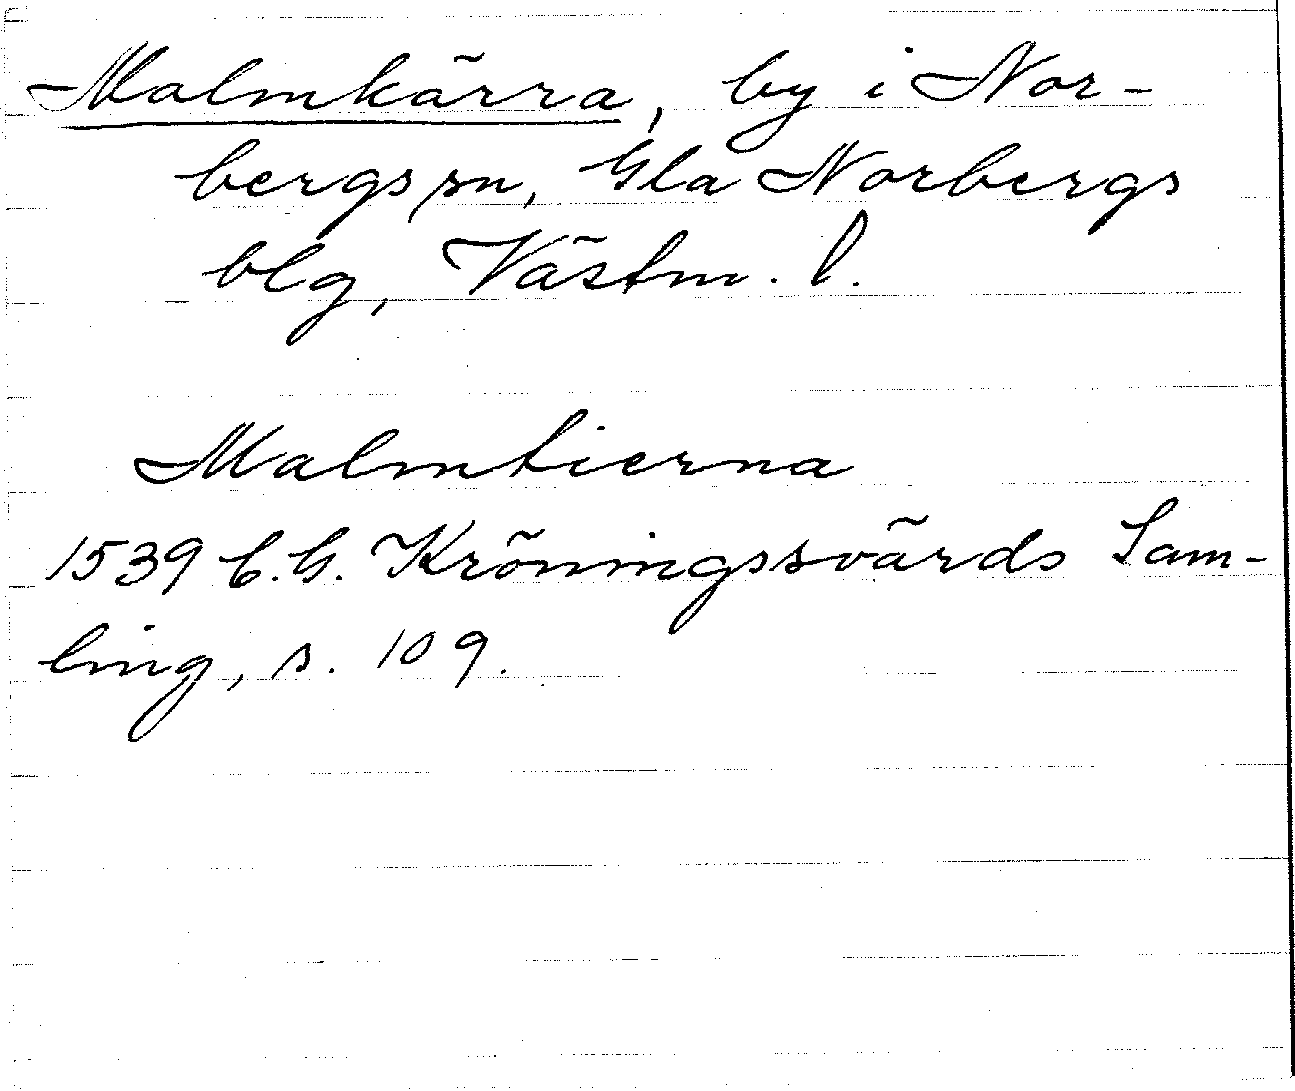 Malmkärra, by i Nor-
bergs sn, Gla Norbergs
blg, Västm. l.
Malmtierna
1539 C.G. Kröningssvärds Sam-
ling, s. 109.